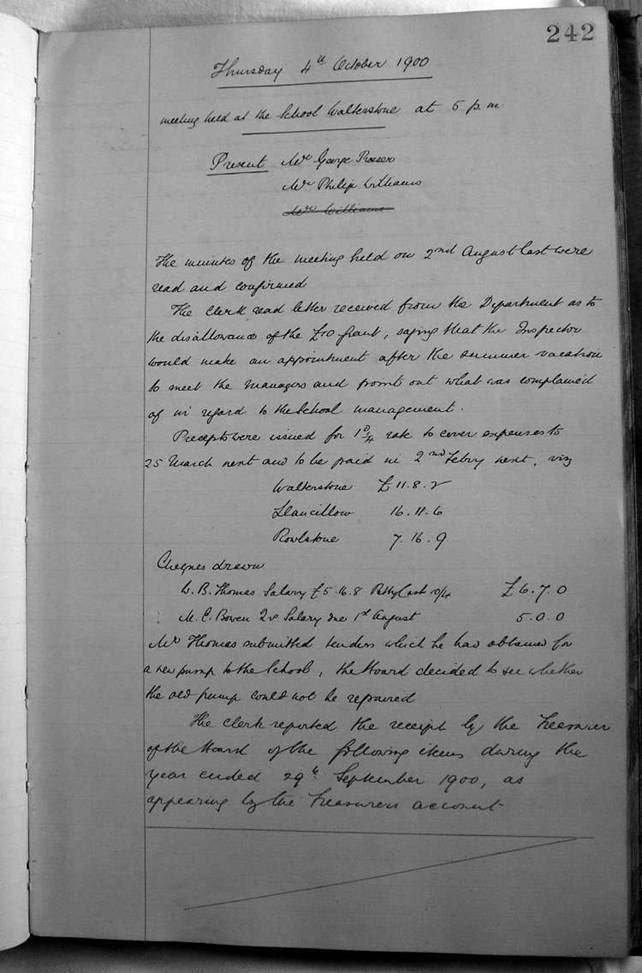 242
Thursday 4th October 1900
meeting held at the School Walterstone at 5 p.m
Present Mr George Prosser
Mr Philip Williams
Mr Williams
The minutes of the meeting held on 2nd August last were
read and confirmed
The Clerk read letter received from the Department as to
the disallowance of the £10 grant, saying that the Inspector
would make an appointment after the summer vacation
to meet the managers and point out what was complained
of in regard to the School management.
Precepts were issued for rate to cover expenses to
25 March next and to be paid in 2nd Febry next, viz
Walterstone £11.8.2
Llancillow 16.11.6
Rowlstone 7.16.9
Cheques drawn
W. B. Thomas Salary £5.16.8 Petty Cash 10/4 £6.7.0
M. E. Bowen Salary due 1st August 5.0.0
Mr Thomas submitted tenders which he has obtained for
a new pump to the School, the Board decided to see whether
the old pump could not be repaired
The Clerk reported the receipt by the Treasurer
of the Board of the following items during the
year ended 29th September 1900, as
appearing by the Treasurers account